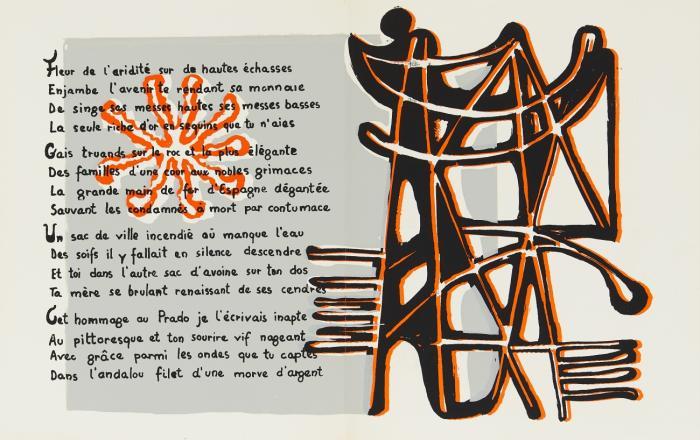 Fleur de l'aridité sur de hautes échasses
Enjambe l'avenir te rendant sa monnaie
De singe ses messes hautes ses messes basses
La seule riche d'or en sequins que tu n'aies
Gais truands sur le roc et la plus élégante
Des familles d'une cour aux nobles grimaces
La grande main de fer d'Espagne dégantée
Sauvant les condamnés à mort par contumace
Un sac de ville incendié où manque l'eau
Des soifs il y fallait en silence descendre
Et toi dans l'autre sac d'avoine sur ton dos
Ta mère se brulant renaissant de ses cendres
Cet hommage au Prado je l'écrivais inapte
Au pittoresque et ton sourire vif nageant
Avec grâce parmi les ondes que tu captes
Dans l'andalou filet d'une morve d'argent